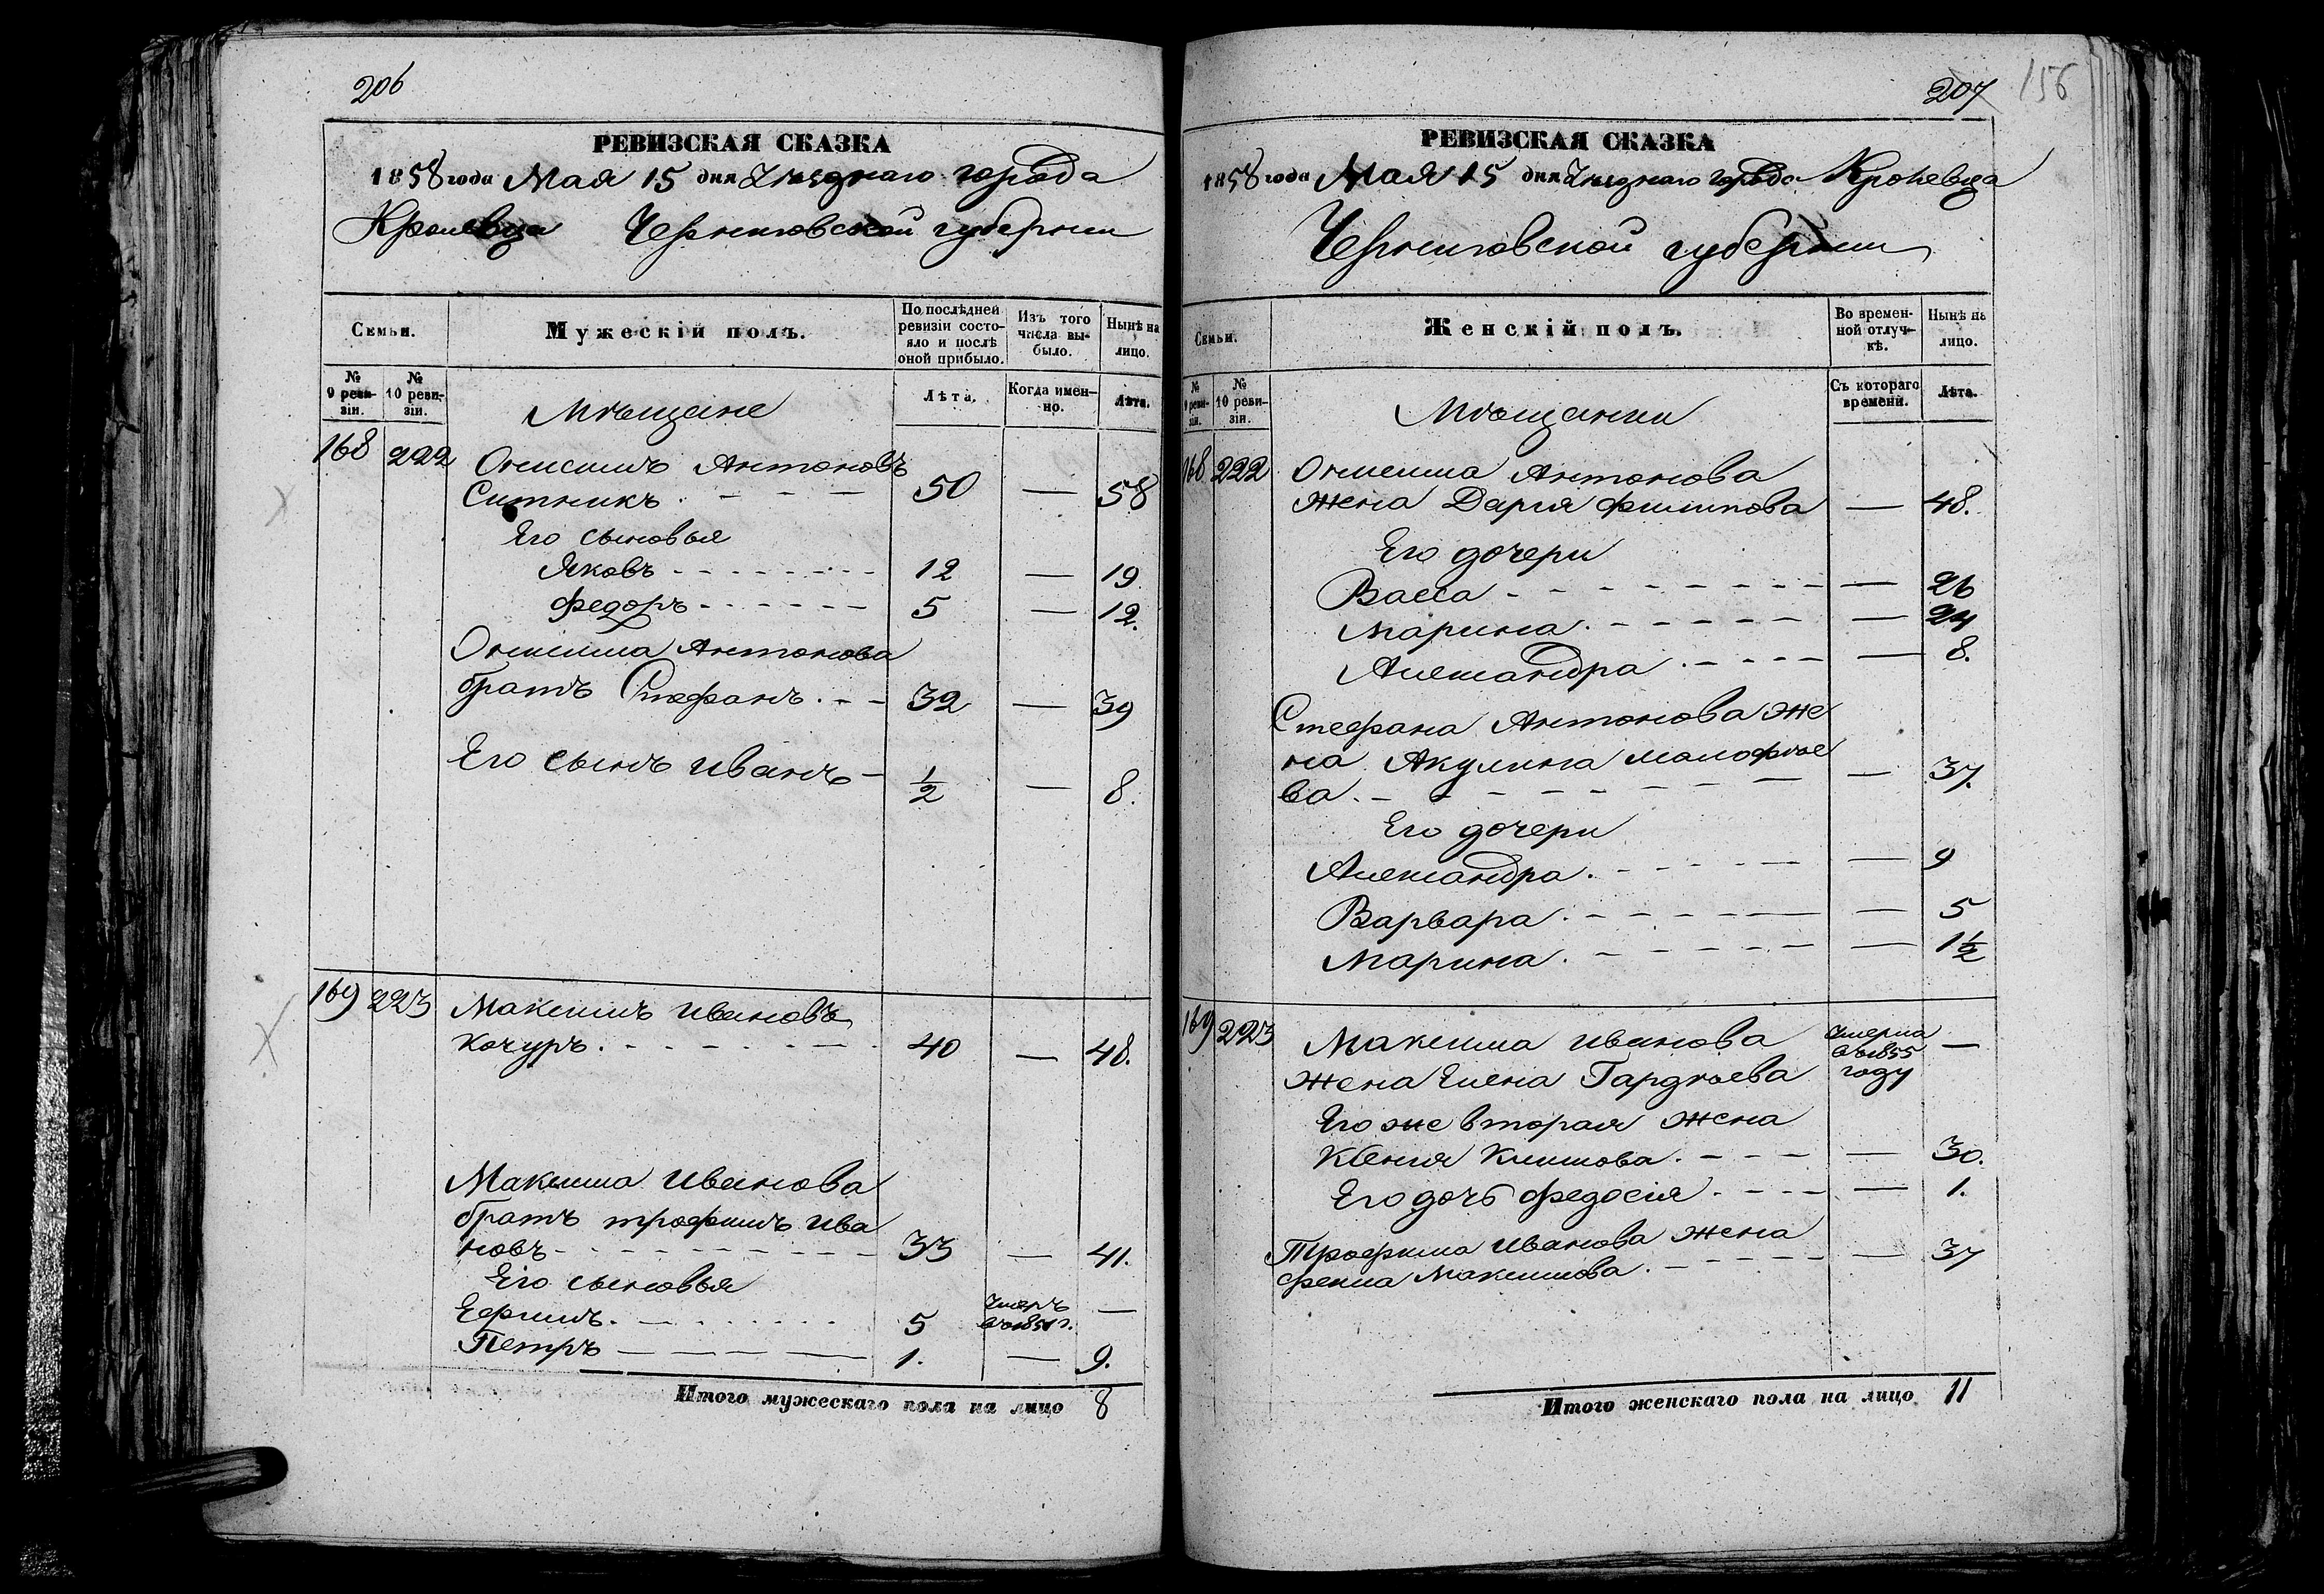 206
РЕВИЗСКАЯ СКАЗКА
1858 года Мая 15 дня Уѣзднаго города
Кролевца Черниговской губернии
Семьи.
Мужескій полъ.
По послѣдней ревизіи состояло и послѣ оной прибыло.
Изъ того числа выбыло.
Нынѣ на лицо.
№ 9 ревизіи.
№ 10 ревизіи.
Мѣщане
Лѣта.
Когда именно.
Лѣта.
168 222 Онисимъ Антоновъ
Ситникъ. 50 — 58
Его сыновья
Яковъ 12 — 19
Федоръ 5 — 12.
Онисима Антонова
братъ Стефанъ. 32 — 39
Его сынъ Иванъ 1/2 — 8.
169 223 Максимъ Ивановъ
Кочуръ. 40 — 48.
Максима Иванова
братъ Трофимъ Ива
новъ 33 — 41.
Его сыновья
Ефимъ. 5 Умеръ въ 1851 г. —
Петръ 1. — 9.
Итого мужескаго пола на лицо 8
207 156
РЕВИЗСКАЯ СКАЗКА
1858 года Мая 15 дня Уѣзднаго города Кролевца
Черниговской губернии
Семьи.
Женскій полъ.
Во временной отлучкѣ.
Нынѣ на лицо.
№ 9 ревизіи.
№ 10 ревизіи.
Мѣщанки
Съ котораго времени.
Лѣта.
168 222 Онисима Антонова
жена Дарія Филипова — 48.
Его дочери
Васса — 26
Марина. — 24
Александра. — 8.
Стефана Антонова же
на Акулина Малофѣе
ва. — 37.
Его дочери
Александра. — 9
Варвара. — 5
Марина. — 1 1/2
169 223 Максима Иванова
жена Елена Гардѣева Умерла въ 1855 году —
Его же вторая жена
Ксенія Климова. — 30.
Его дочь Федосія. — 1.
Трофима Иванова жена
Фекла Максимова. — 37
Итого женскаго пола на лицо 11